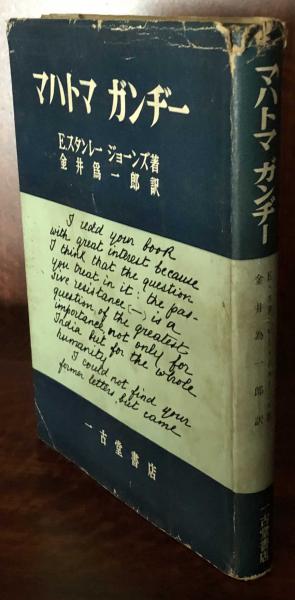 マハトマ ガンヂー
E.スタンレー ジョーンズ著
金井爲一郎訳
I read your book
with great interest because
I think that the question
you treat in it: the pas-
sive resistance (—) is a
question of the greatest
importance not only for
India but for the whole
humanity
I could not find your
former letters, but came
一古堂書店
マハトマ ガンヂー
金井爲一郎訳
一古堂書店